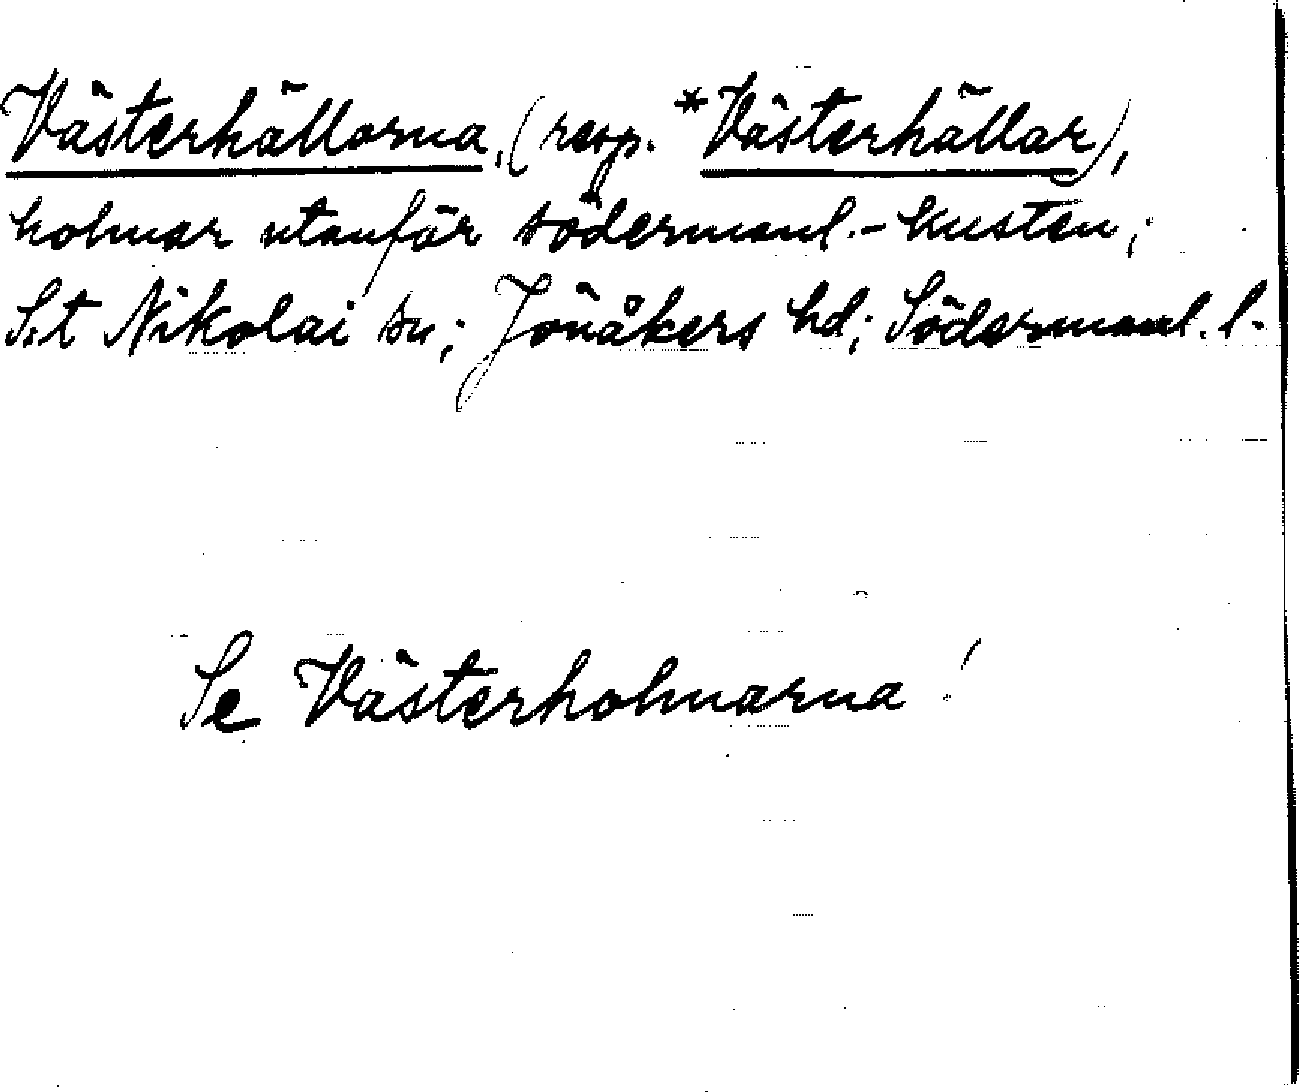 Västerhällorna, (resp. *Västerhällar),
holmar utanför södermanl.-kusten;
S:t Nikolai sn; Jönåkers hd; Södermanl. l.
Se Västerholmarna!